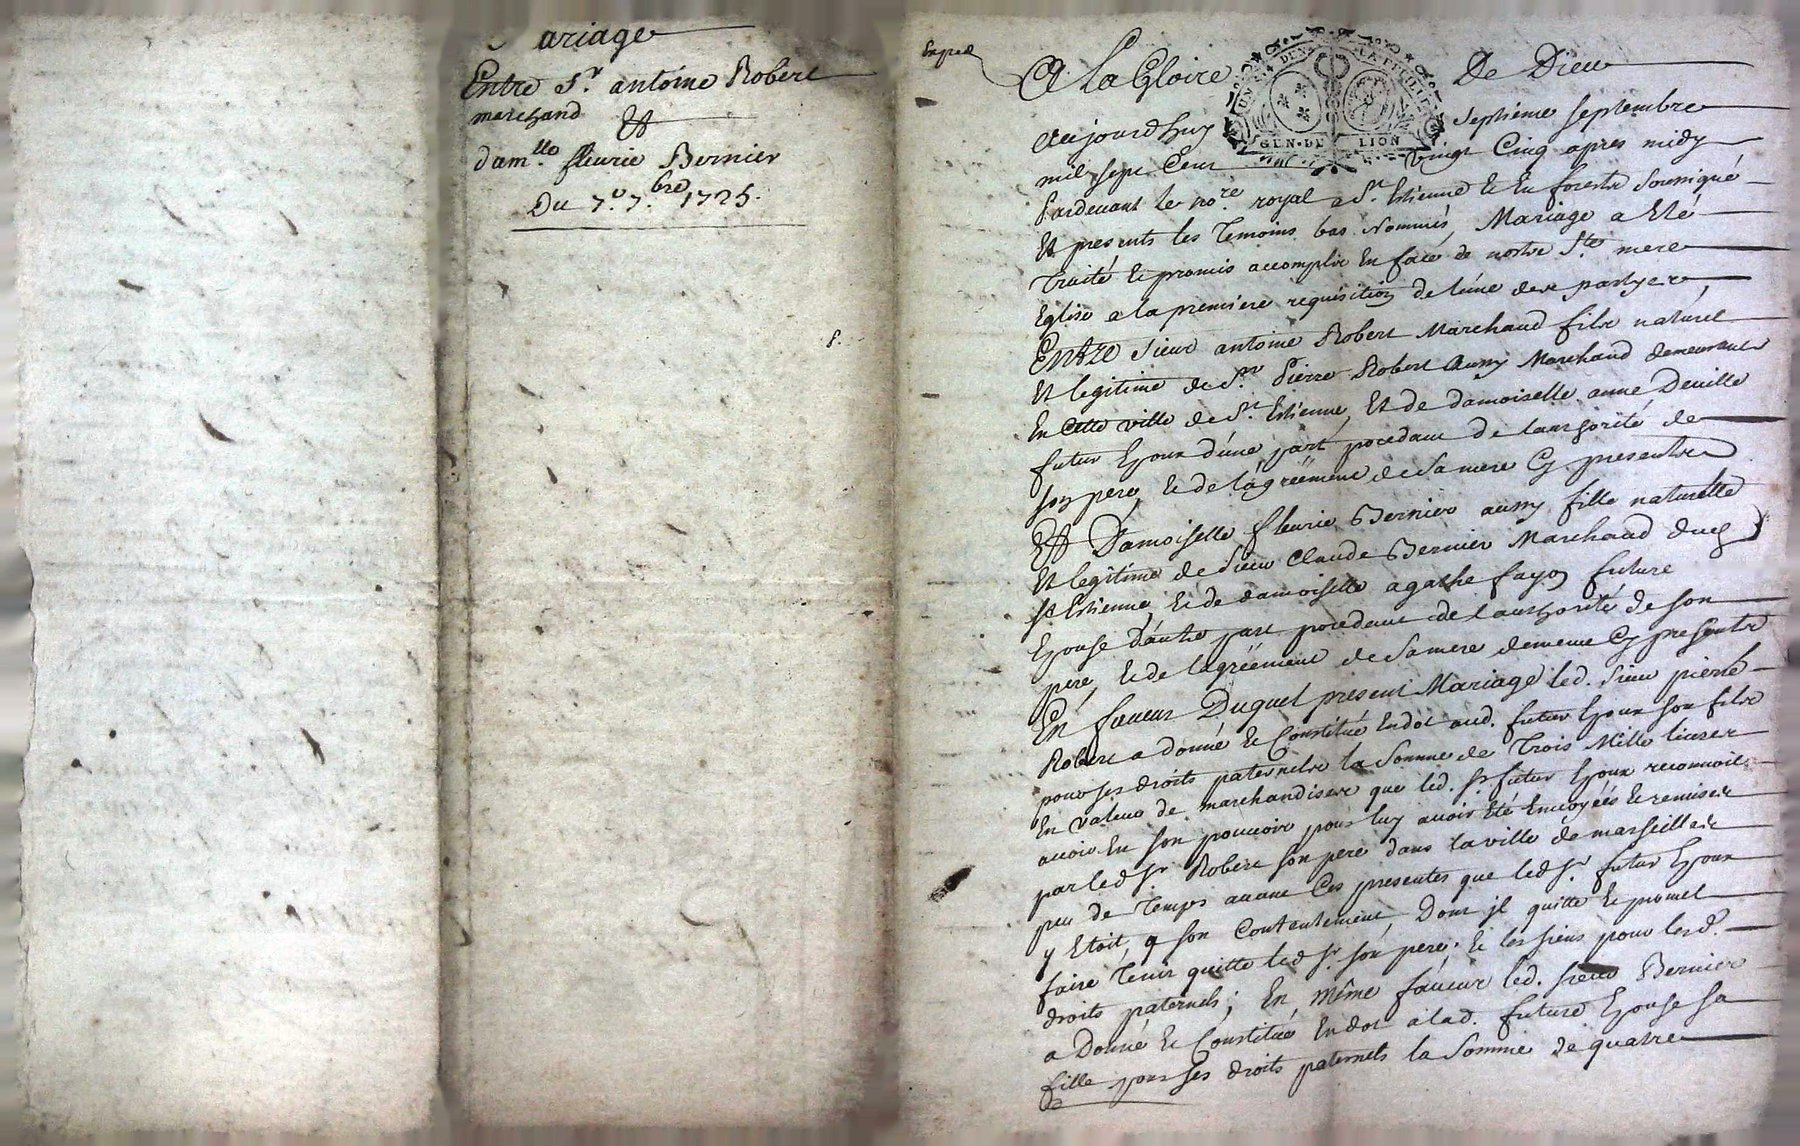 Mariage
Entre Sr. antoine Robert
marchand
Et
dam.lle fleurie Bernier
Du 7.e 7.bre 1725.
8.
Exped
A La Gloire De Dieu
GEN·DE LION
Aujourdhuy Septieme Septembre
mil sept Cent vingt Cinq apres midy
Pardevant le no.re royal a St. Estienne Et En forestz Soussigné
Et presents les Temoins bas Nommés, Mariage a Eté
Traité Et promis accomplir En face de nostre Ste. mere
Eglise a la premiere requisition de l'une des partyes,
Entre Sieur antoine Robert Marchand fils naturel
Et legitime de Sr. Pierre Robert Aussy Marchand demeurant
En Cette ville de St. Estienne, Et de damoiselle anne Deville
futur Epoux d'une part procedant de l'authorité de
son pere, Et de l'agréement de Sa mere Cy presentes
Et Damoiselle fleurie Bernier aussy fille naturelle
Et legitime de Sieur Claude Bernier Marchand dud
St Estienne, Et de damoiselle agathe fayon future
Epouse d'autre part procedant de l'authorité de son
pere, Et de l'agréement de Sa mere de meme Cy presentes
En faveur Duquel present Mariage led. Sieur pierre
Robert a Donné Et Constitué En dot aud. futur Epoux son fils
pour ses droits paternels la Somme de Trois Mille livres
En valeur de marchandises que led. Sr futur Epoux reconnoit
avoir En son pouvoir pour luy avoir Eté Envoyées Et remises
par led Sr Robert son pere dans la ville de marseille
peu de Temps avant Ces presentes que led Sr. futur Epoux
y Etoit, a son Contentement, Dont il quitte Et promet
faire Tenir quitte led Sr. son pere, Et les siens pour lesd.
droits paternels; En même faveur led. Sieur Bernier
a Donné Et Constitué En dot a lad. future Epouse sa
fille pour ses droits paternels la Somme de quatre